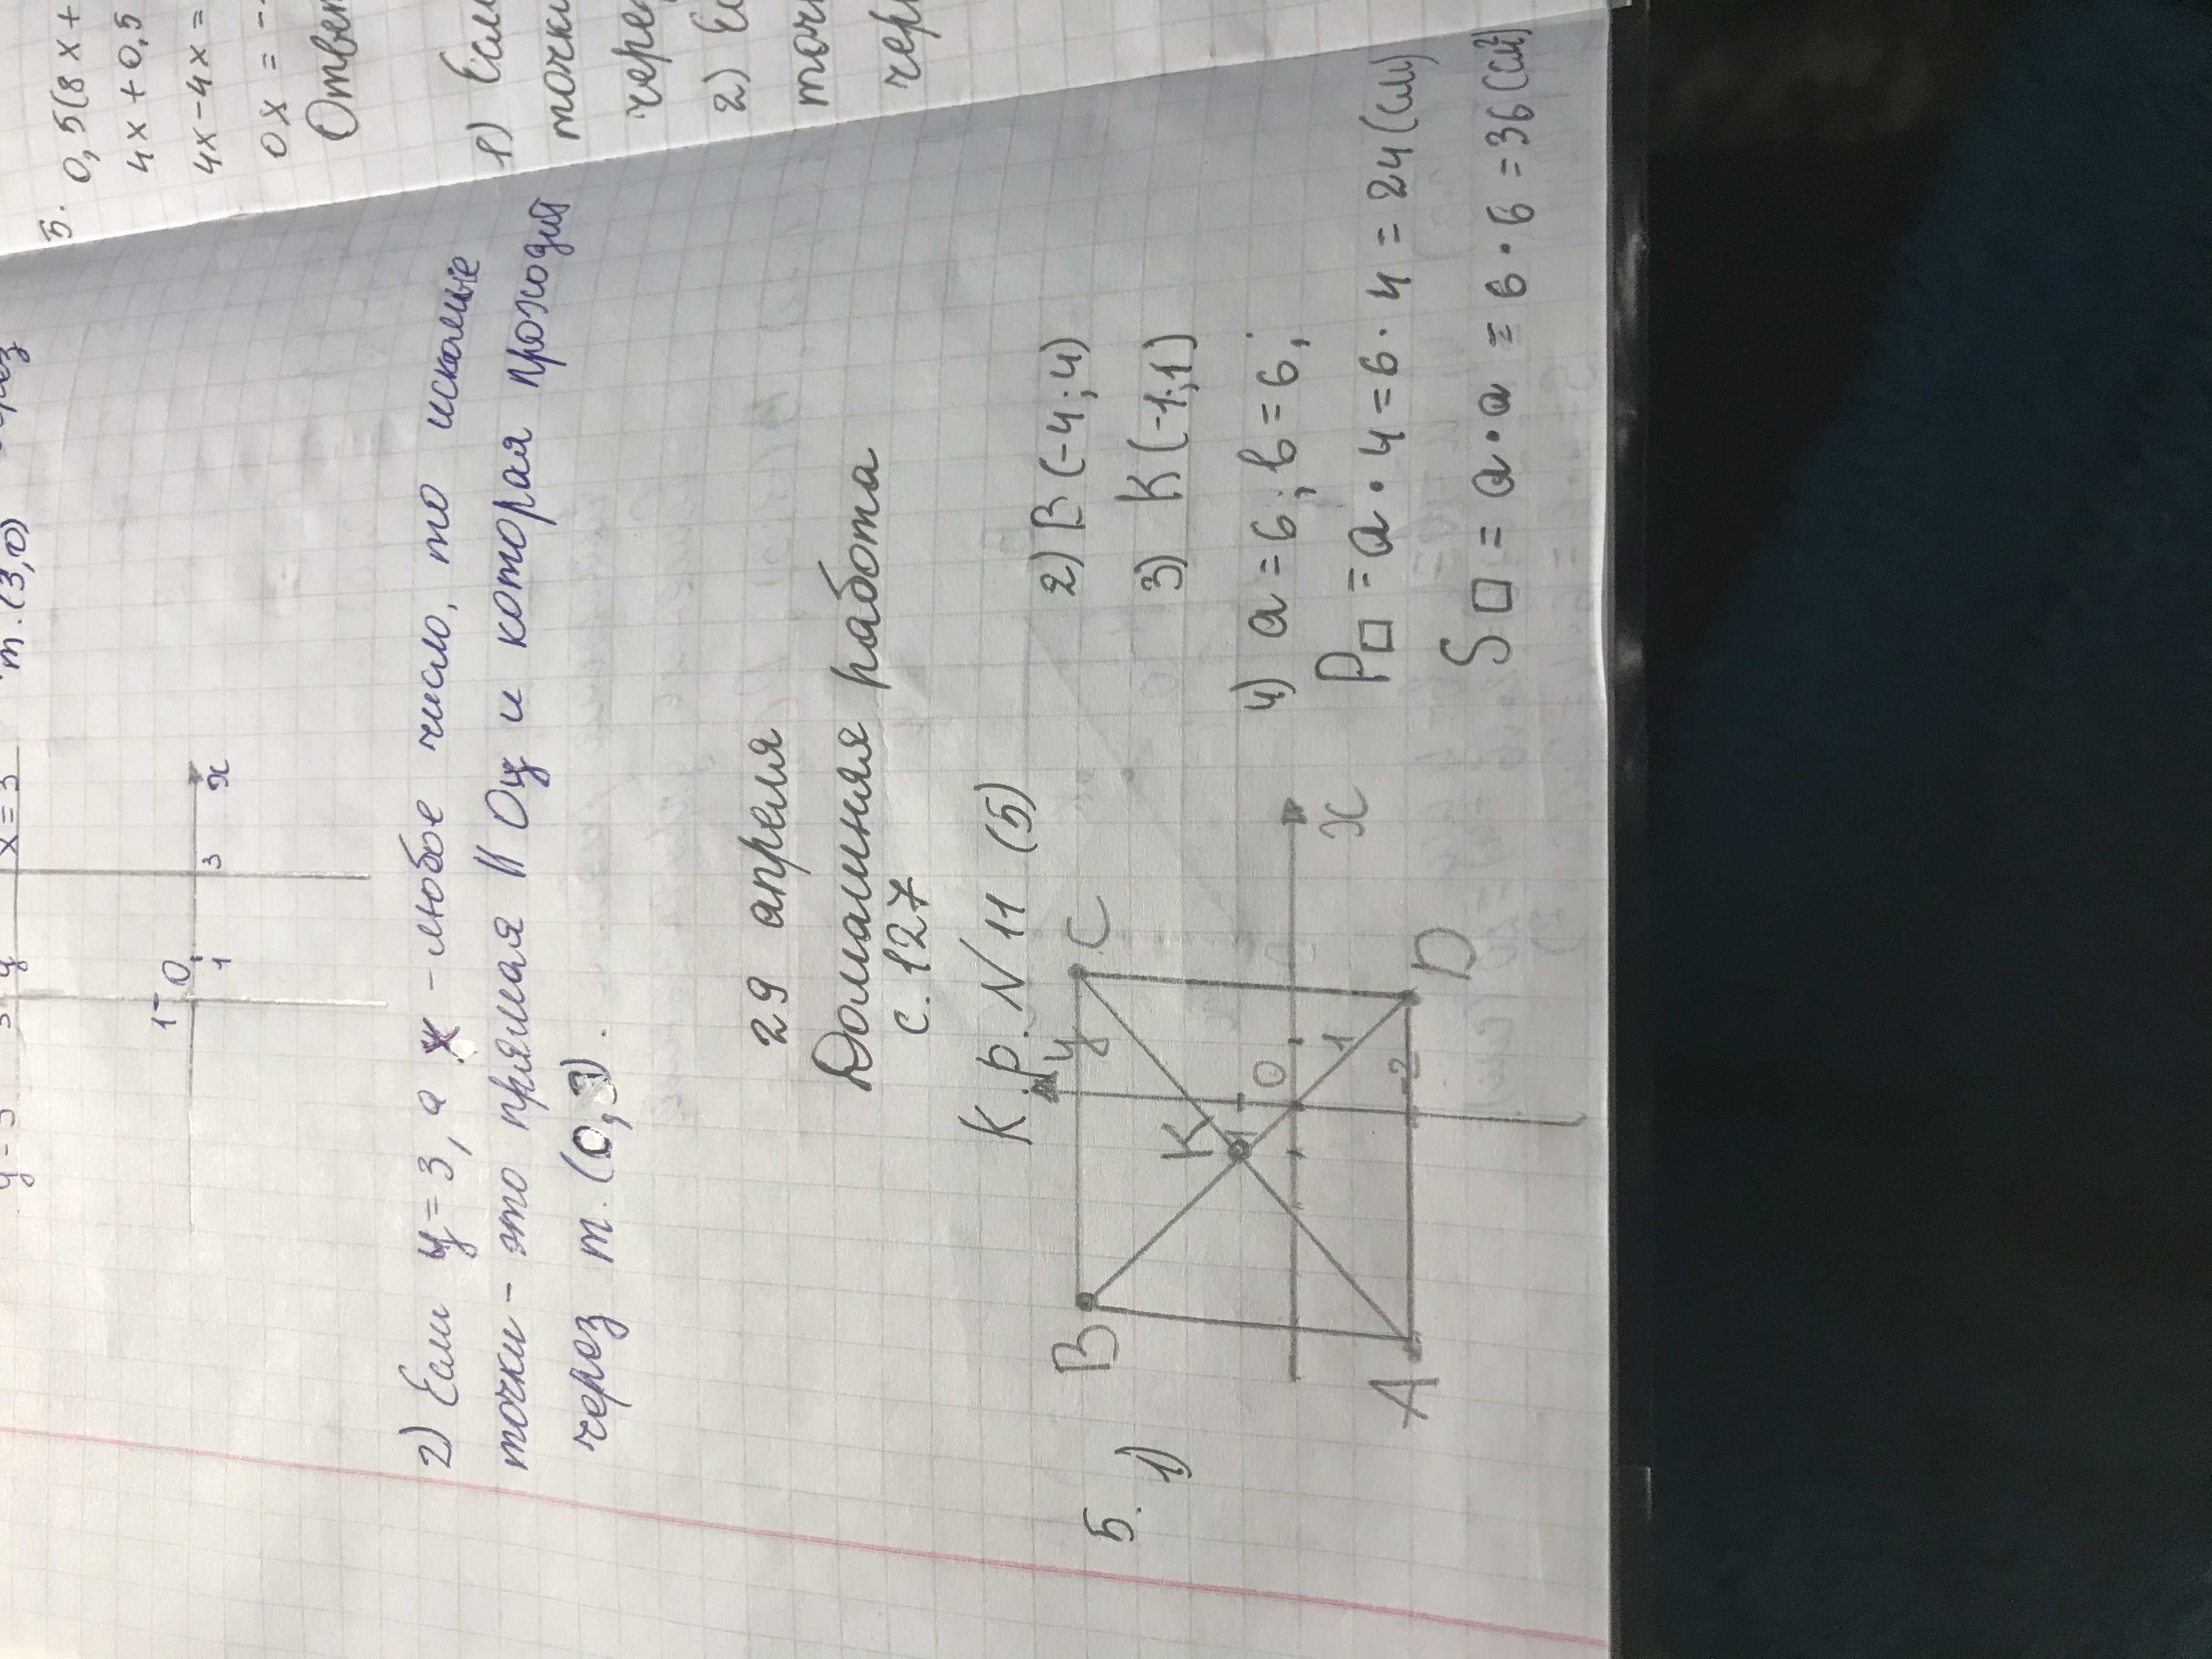 x = 3
т. (3,0)
1
0
1
3
x
2) Если y = 3, а x - любое число, то искомые
точки - это прямая || Oy и которая проходит
через т. (0,3).
29 апреля
Домашняя работа
с. 127
К.р. N 11 (5)
5. 1)
B
y
C
K
1
0
1
x
-2
A
D
2) B (-4; 4)
3) K (-1; 1)
4) a = 6; b = 6;
P□ = a · 4 = 6 · 4 = 24 (см)
S□ = a · a = 6 · 6 = 36 (см²)
5. 0,5(8x +
4x + 0,5
4x - 4x =
0x = -
Ответ
1) Если
точки
через
2) Ес
точк
чер